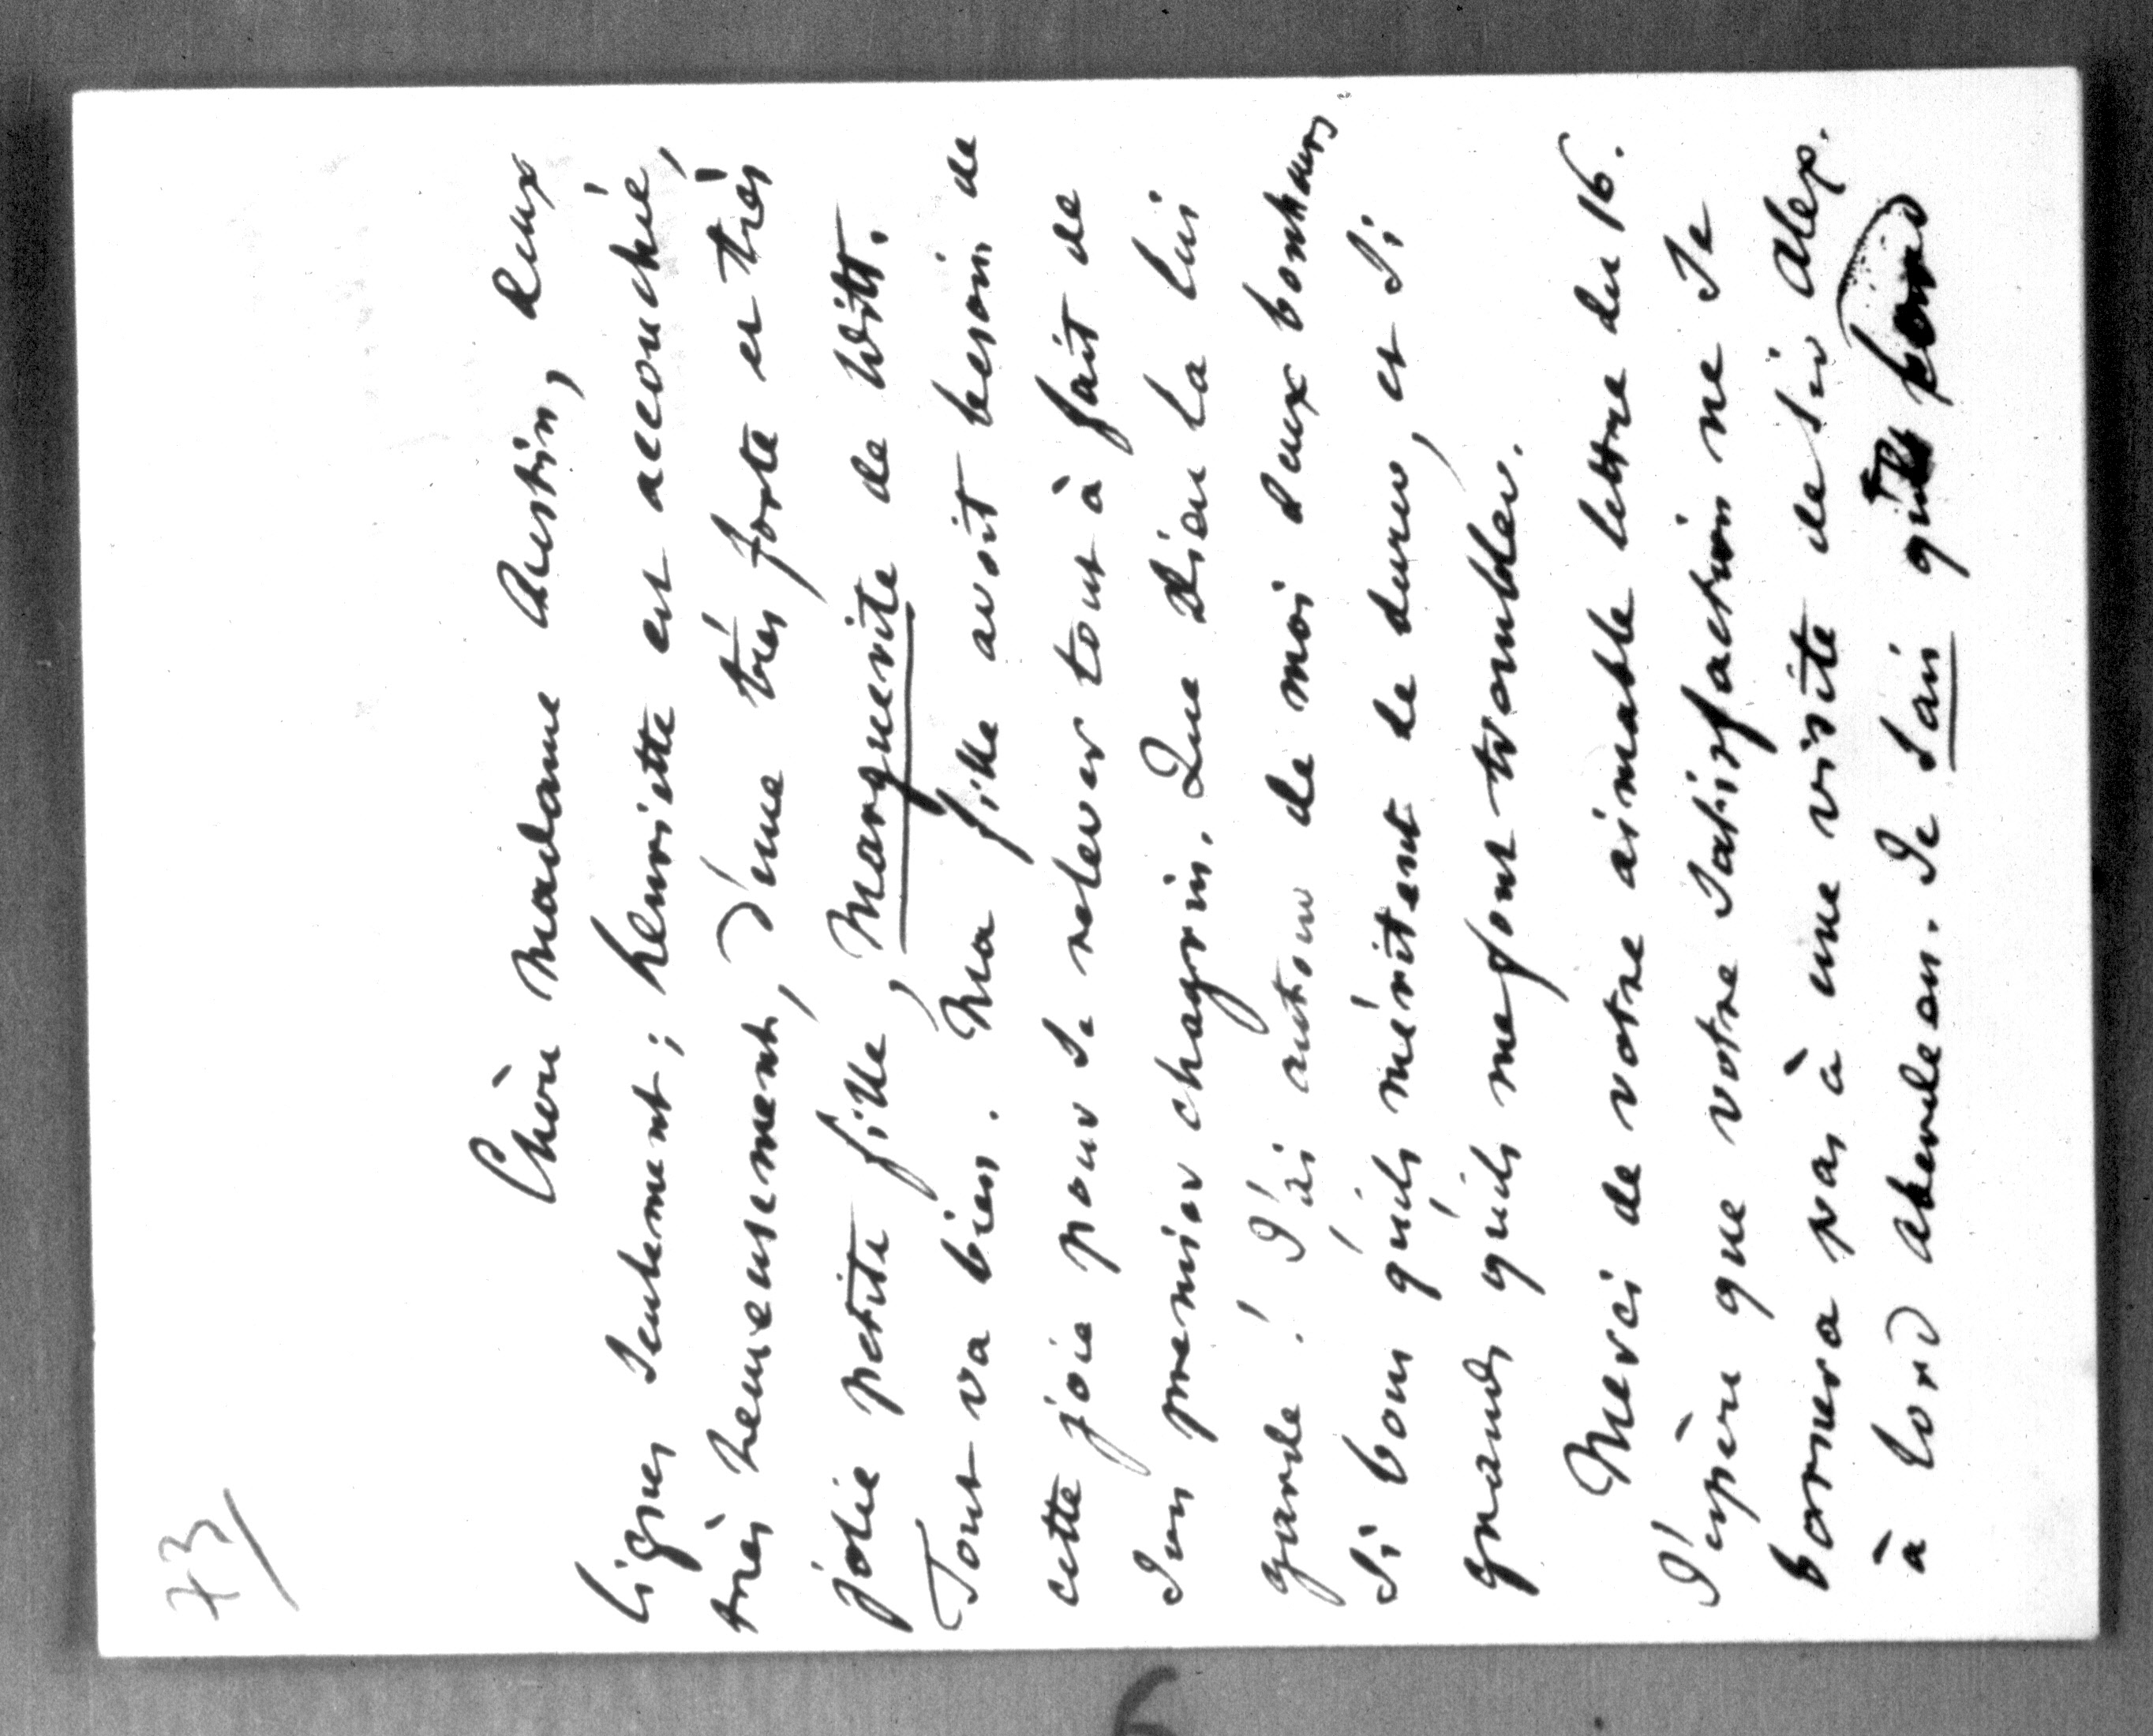 73
Chère Madame Austin, deux
lignes seulement ; henriette est accouchée,
très heureusement, d'une très forte et très
jolie petite fille, Marguerite de Witt.
Tout va bien. Ma fille avoit besoin de
cette joie pour se relever tout à fait de
son premier chagrin. Que Dieu la lui
garde ! J'ai autour de moi deux bonheurs
si bons qu'ils méritent de durer, et si
grands qu'ils me font trembler.
Merci de votre aimable lettre du 16.
J'espère que votre satisfaction ne se
bornera pas à une visite de Sir Alex.
à lord Aberdeen. Je sais